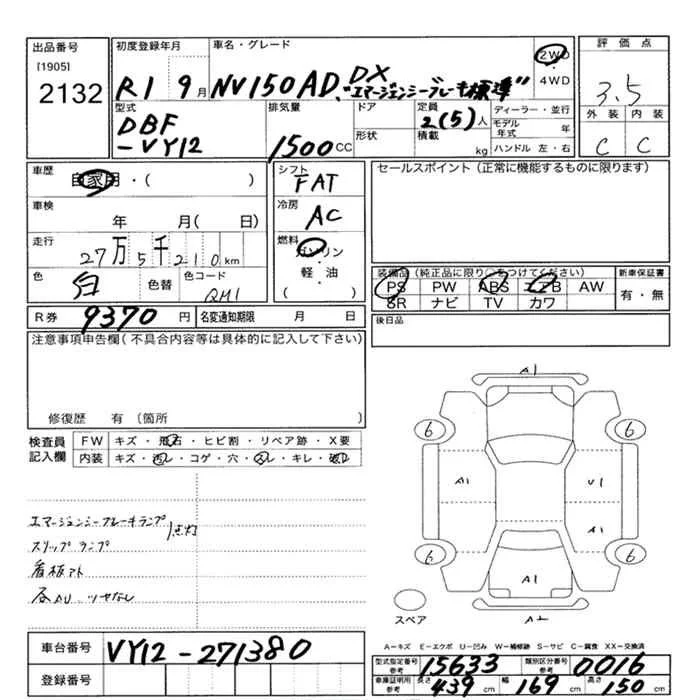 出品番号
[1905]
2132
初度登録年月
R1 9月
車名・グレード
NV150AD DX
"エマージェンシーブレーキ標準"
2WD
4WD
評価点
3.5
外装 内装
C C
型式
DBF
-VY12
排気量
1500CC
ドア
形状
定員
2(5)人
積載
kg
ディーラー・並行
モデル年式 年
ハンドル 左・右
車歴
自家用・( )
車検
年 月( 日)
走行
27万5千210km
色
白
色替
色コード
QM1
シフト
FAT
冷房
AC
燃料
ガソリン
・
軽・油
( )
セールスポイント(正常に機能するものに限ります)
装備品(純正品に限り○をつけてください)
PS PW ABS エアB AW
SR ナビ TV カワ
新車保証書
有・無
後日品
R券 9370円
名変通知期限 月 日
注意事項申告欄(不具合内容等は具体的に記入して下さい)
修復歴 有(箇所 )
検査員
記入欄
FW キズ・飛石・ヒビ割・リペア跡・X要
内装 キズ・汚レ・コゲ・穴・スレ・キレ・
エマージェンシーブレーキランプ
点灯
スリップランプ
看板アト
ツヤなし
A1
6 6
A1 U1
A1
6 6
A1
スペア
車台番号 VY12-271380
登録番号
A-キズ E-エクボ U-凹み W-補修跡 S-サビ C-腐食 XX-交換済
型式指定番号 参考 15633
類別区分番号 参考 0016
車庫証明用 参考 長さ 439cm 幅 169cm 高さ 150cm